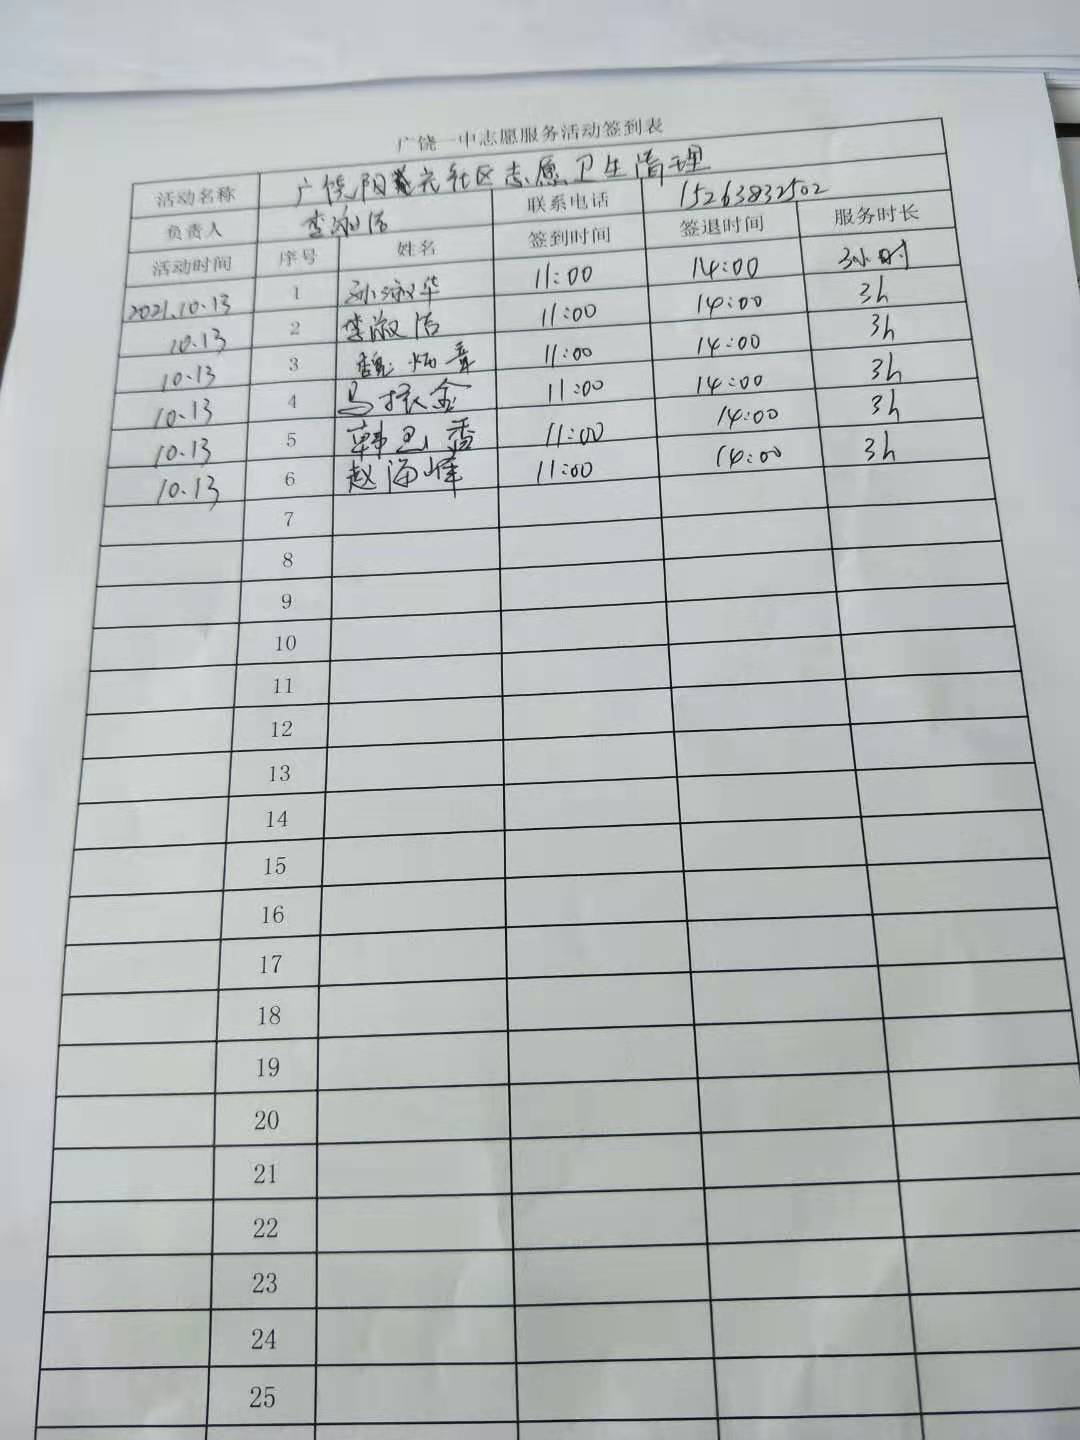 广饶一中志愿服务活动签到表
活动名称 广饶阳 社区志愿卫生清理
负责人 李淑洁 联系电话 15263832502
活动时间 序号 姓名 签到时间 签退时间 服务时长
2021.10.13 1 孙淑华 11:00 14:00 3小时
10.13 2 李淑洁 11:00 14:00 3h
10.13 3 魏炳章 11:00 14:00 3h
10.13 4 马振金 11:00 14:00 3h
10.13 5 韩玉香 11:00 14:00 3h
10.13 6 赵海峰 11:00 14:00 3h
7
8
9
10
11
12
13
14
15
16
17
18
19
20
21
22
23
24
25